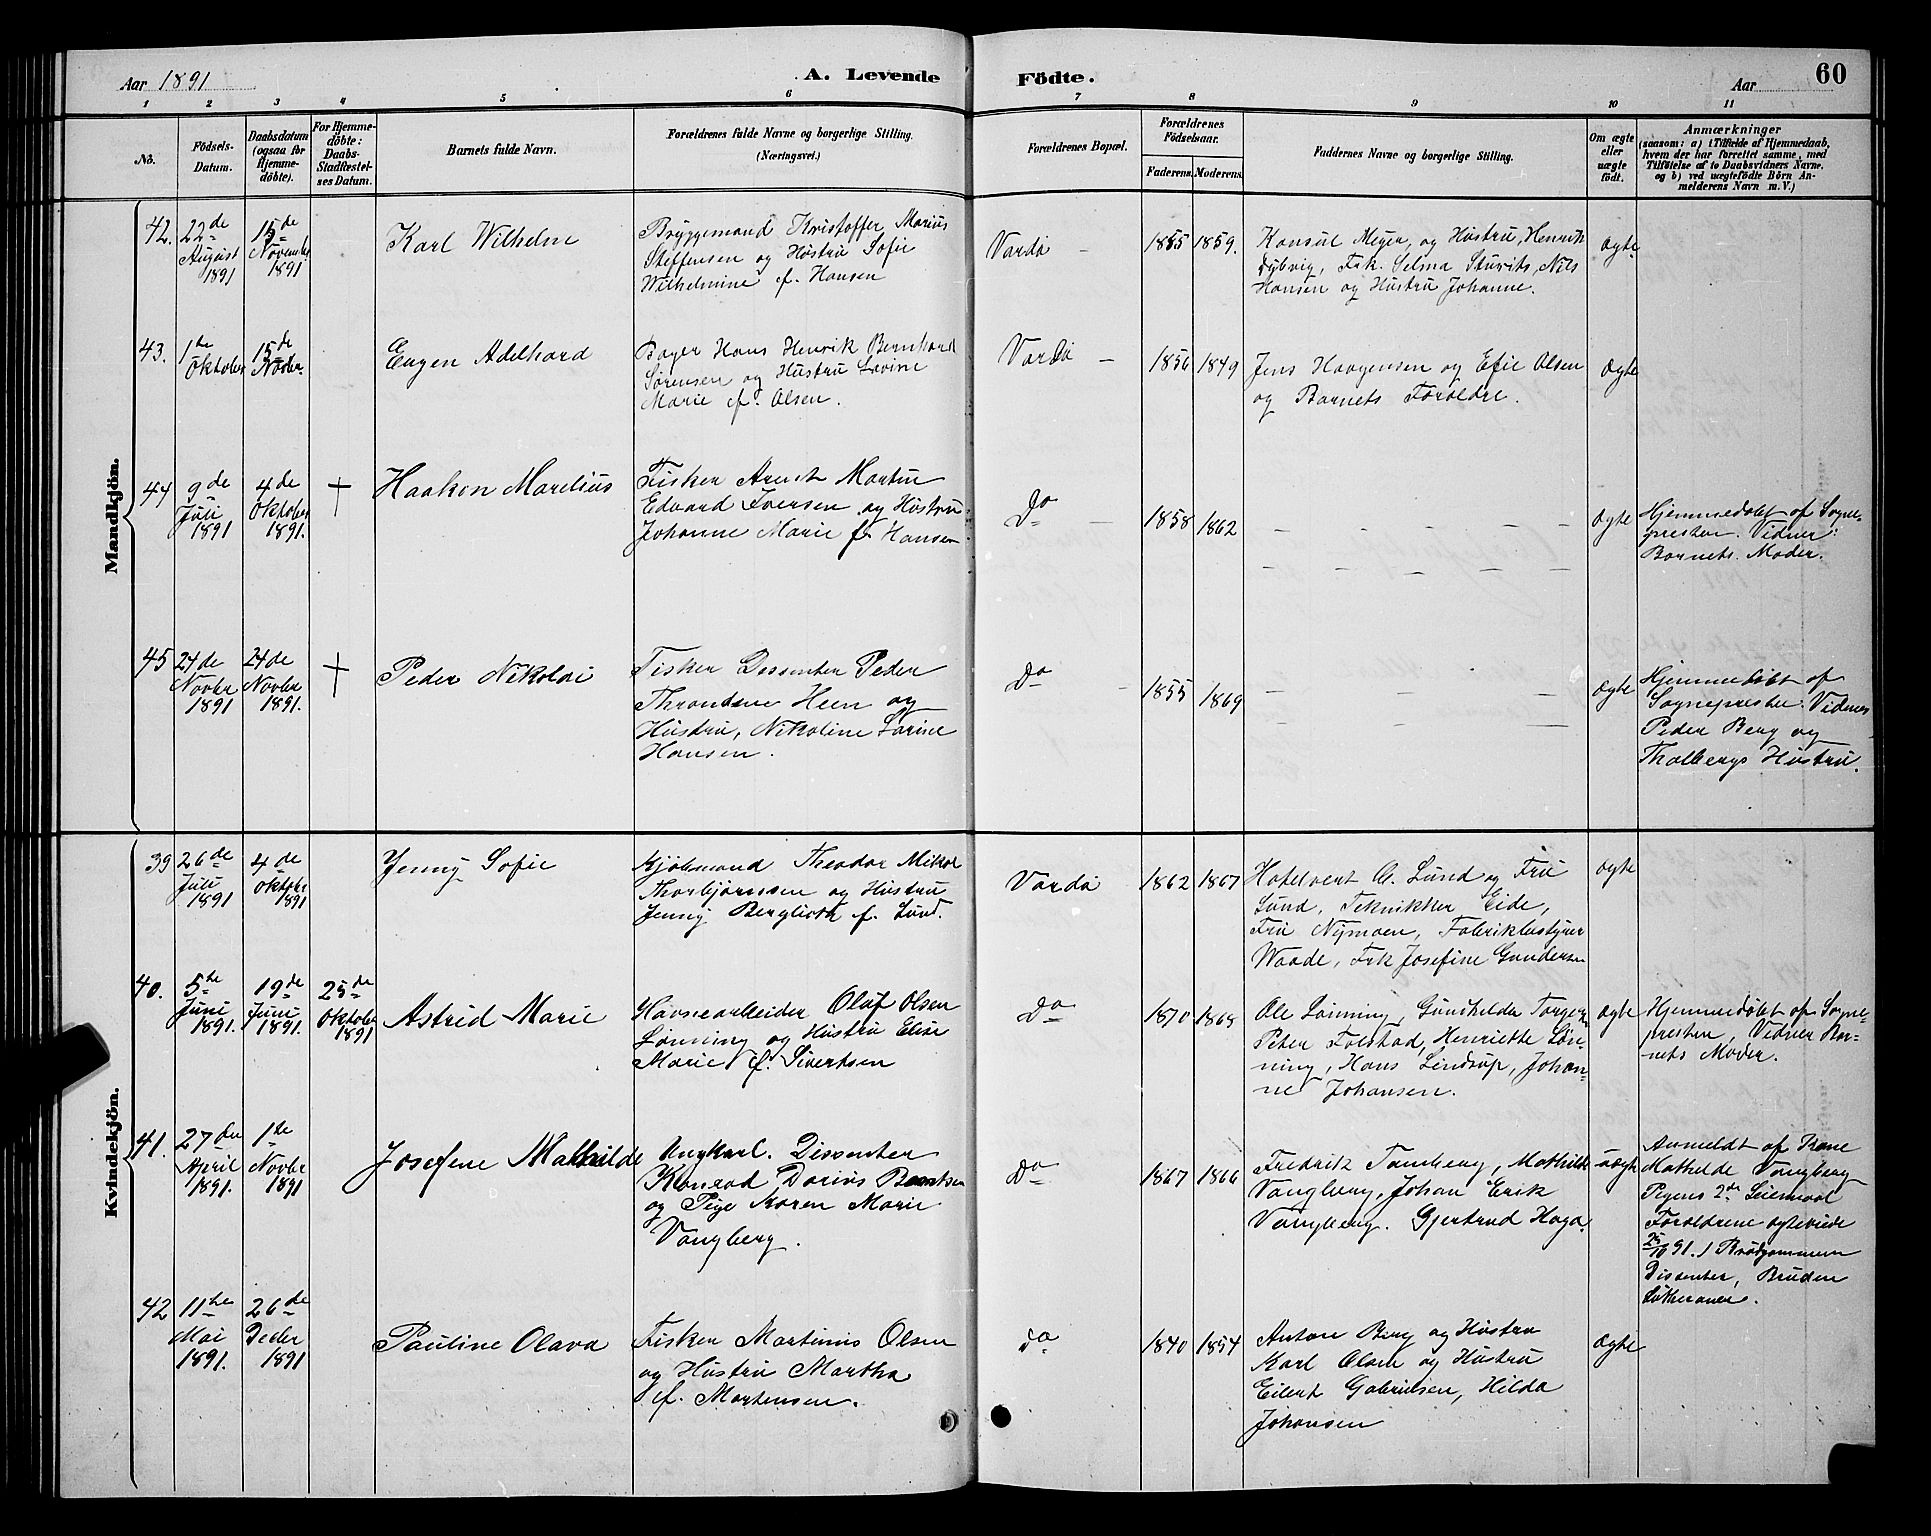 Aar 1891
A. Levende
Födte.
Aar
60
1 2 3 4 5 6 7 8 9 10 11
No.
Födsels-
Datum.
Daabsdatum
(ogsaa for
Hjemme-
döbte).
For Hjemme-
döbte:
Daabs-
Stadfæstel-
ses Datum.
Barnets fulde Navn.
Forældrenes fulde Navne og borgerlige Stilling.
(Næringsvei.)
Forældrenes Bopæl.
Forældrenes
Födselsaar.
Faderens.
Moderens.
Faddernes Navne og borgerlige Stilling.
Om ægte
eller
uægte
födt.
Anmærkninger
(saasom: a) i Tilfælde af Hjemmedaab,
hvem der har forrettet samme, med
Tilföielse af to Daabsvidners Navne,
og b) ved uægtefödte Börn An-
melderens Navn m. V.)
Mandkjön.
42.
22de
August
1891
15de
November
1891
Karl Wilhelm
Bryggemand Kristoffer Marius
Steffensen og Hustru Sofie
Wilhelmine f. Hansen
Vardø –
1855
1859.
Konsul Meyer, og Hustru, Henrik
Dybvig, Frk. Selma Sturits, Nils
Hansen og Hustru Johanne.
ægte
43.
1te
Oktober
15de
Novbr.
Eugen Adelhard
Bager Hans Henrik Bernhard
Sørensen og Hustru Lovine
Marie f. Olsen.
Vardø –
1856
1849
Jens Haagensen og Efie Olsen
og Barnets Forældre.
ægte
44
9de
Juli
1891
4de
Oktober
1891.
†
Haakon Marelius
Fisker Arent Martin
Edvard Iversen og Hustru
Johanne Marie f. Hansen
Do –
1858
1862
– – – – –
– – – – –
ægte
Hjemmedøbt af Sogne-
presten. Vidner:
Barnets Moder.
45
24de
Novbr
1891
24de
Novbr
1891.
†
Peder Nikolai
Fisker Dissenter Peder
Throndsen Heen og
Hustru, Nikoline Larine
Hansen.
Do –
1855
1869
– – – – –
– – – – –
ægte
Hjemmedøbt af
Sognepresten. Vidner
Peder Berg og
Thalbergs Hustru.
Kvindekjön.
39
26de
Juli
1891
4de
Oktober
1891
Jenny Sofie
Kjøbmand Theodor Mikal
Thorbjørnsen og Hustru
Jenny Berglioth f. Lund.
Vardø
1862
1867
Hotelvert A. Lund og Fru
Lund, Teknikker Eide,
Fru Nymoen, Fabrikbestyrer
Waade, Frk Josefine Gundersen
ægte
40.
5te
Juni
1891.
19de
Juni
1891.
25de
Oktober
1891
Astrid Marie
Havnearbeider Oluf Olsen
Lønning og Hustru Elise
Marie f. Sivertsen
Do
1870
1865
Ole Lønning, Gundhilda Torgers
Peter Folstad, Henriette Løn-
ning, Hans Lindrup, Johan-
ne Johansen.
ægte
Hjemmedøbt af Sogne-
presten, Vidner Bar-
nets Moder.
41.
27de
April
1891.
1te
Novbr
1891
Josefine Mathilde
Ungkarl. Dissenter
Konrad Darius Berntsen
og Pige Karen Marie
Vangberg.
Do
1867
1866
Fredrik Tamberg, Mathilde
Vangberg, Johan Erik
Vangberg. Gjertrud Haga.
uægte
Anmeldt af Kone
Mathilde Vangberg
Pigens 2de Leiermaal
Forældrene ægteviede
25/10 91. / Brudgommen
Dissenter, Bruden
Lutheraner.
42
11te
Mai
1891.
26de
Decbr
1891
Pauline Olava
Fisker Martinus Olsen
og Hustru Martha
f. Mortensen.
Do
1840
1854
Anton Berg og Hustru
Karl Olsen og Hustru
Eilert Gabrielsen, Hilda
Johansen
ægte